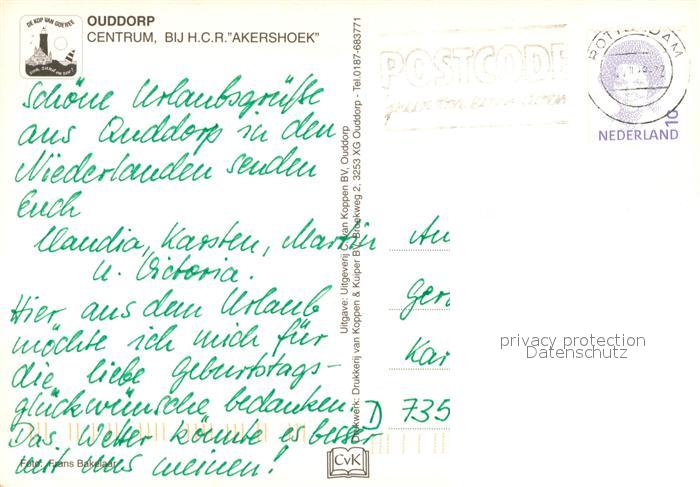 DE KOP VAN GOEREE
OUDDORP
CENTRUM, BIJ H.C.R."AKERSHOEK"
Schöne Urlaubsgrüße
aus Ouddorp in den
Niederlanden senden
Euch
Claudia, Karsten, Martin
u. Victoria.
Hier aus dem Urlaub
möchte ich mich für
die liebe Geburtstags-
glückwünsche bedanken.
Das Wetter könnte es besser
mit uns meinen!
Foto: Frans Bakelaar
Uitgave: Uitgeverij van Koppen BV, Ouddorp
Drukwerk: Drukkerij van Koppen & Kuiper BV, Broekweg 2, 3253 XG Ouddorp - Tel.0187-683771
CvK
POSTCODE
ROTTERDAM
NEDERLAND
An
Ger
Kar
D 735
privacy protection
Datenschutz